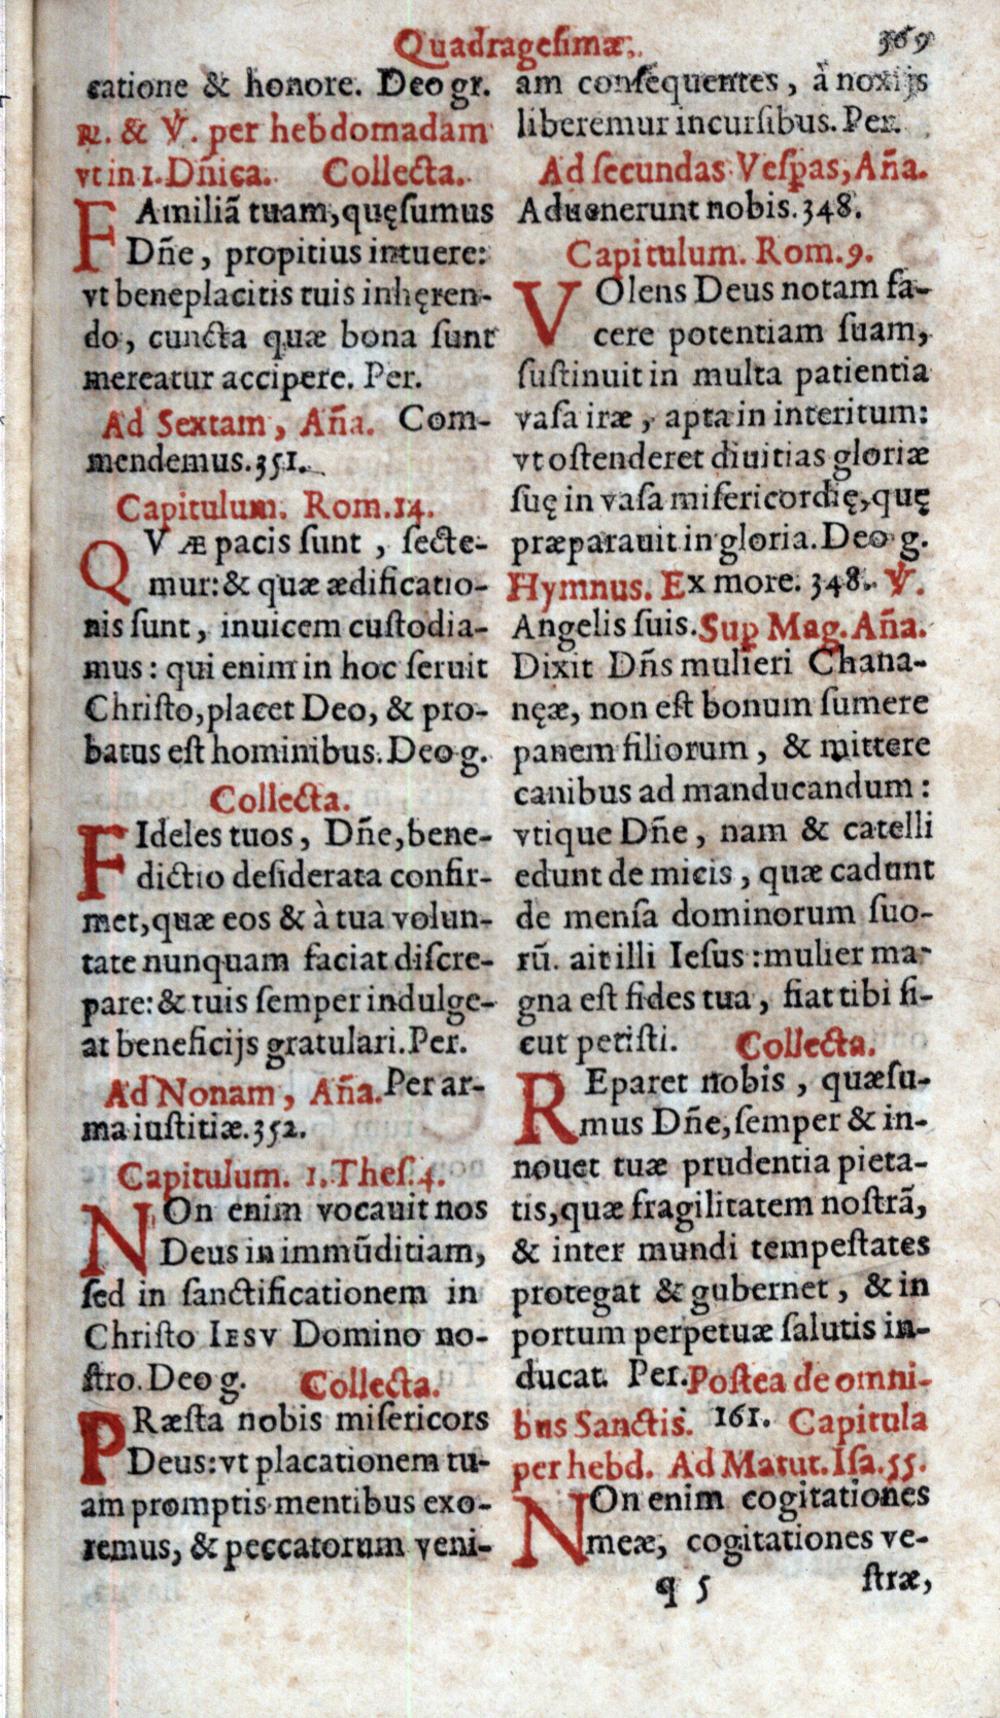 Quadragesimæ. 369
catione & honore. Deo gr.
℟. & ℣. per hebdomadam
vt in 1. Dñica. Collecta.
FAmiliã tuam, quęſumus
Dñe, propitius intuere:
vt beneplacitis tuis inhęren-
do, cuncta quæ bona ſunt
mereatur accipere. Per.
Ad Sextam, Aña. Com-
mendemus. 351.
Capitulum. Rom. 14.
QVÆ pacis ſunt, ſecte-
mur: & quæ ædificatio-
nis ſunt, inuicem cuſtodia-
mus: qui enim in hoc ſeruit
Chriſto, placet Deo, & pro-
batus eſt hominibus. Deo g.
Collecta.
FIdeles tuos, Dñe, bene-
dictio deſiderata confir-
met, quæ eos & à tua volun-
tate nunquam faciat diſcre-
pare: & tuis ſemper indulge-
at beneficijs gratulari. Per.
Ad Nonam, Aña. Per ar-
ma iuſtitiæ. 352.
Capitulum. 1. Theſ. 4.
NOn enim vocauit nos
Deus in immũditiam,
ſed in ſanctificationem in
Chriſto IESV Domino no-
ſtro. Deo g. Collecta.
PRæſta nobis miſericors
Deus: vt placationem tu-
am promptis mentibus exo-
remus, & peccatorum veni-
am conſequentes, à noxijs
liberemur incurſibus. Per.
Ad ſecundas Veſpas, Aña.
Aduenerunt nobis. 348.
Capitulum. Rom. 9.
VOlens Deus notam fa-
cere potentiam ſuam,
ſuſtinuit in multa patientia
vaſa iræ, apta in interitum:
vt oſtenderet diuitias gloriæ
ſuę in vaſa miſericordię, quę
præparauit in gloria. Deo g.
Hymnus. Ex more. 348. ℣.
Angelis ſuis. Sup Mag. Aña.
Dixit Dñs mulieri Chana-
nęæ, non eſt bonum ſumere
panem filiorum, & mittere
canibus ad manducandum:
vtique Dñe, nam & catelli
edunt de micis, quæ cadunt
de menſa dominorum ſuo-
rũ. ait illi Ieſus: mulier ma-
gna eſt fides tua, fiat tibi ſi-
cut petiſti. Collecta.
REparet nobis, quæſu-
mus Dñe, ſemper & in-
nouet tuæ prudentia pieta-
tis, quæ fragilitatem noſtrã,
& inter mundi tempeſtates
protegat & gubernet, & in
portum perpetuæ ſalutis in-
ducat. Per. Poſtea de omni-
bus Sanctis. 161. Capitula
per hebd. Ad Matut. Iſa. 55.
NOn enim cogitationes
meæ, cogitationes ve-
q 5 ſtræ,